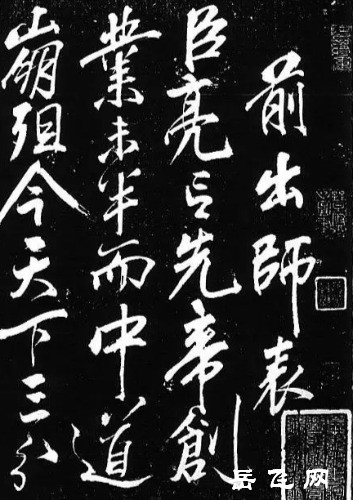 前出師表
臣亮言先帝創
業未半而中道
崩殂今天下三分
岳飞网